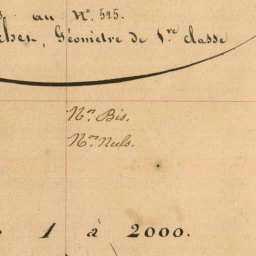 au Nº. 525.
Géomètre de 1re classe
Nos. Bis.
Nos. Nuls.
1 à 2000.